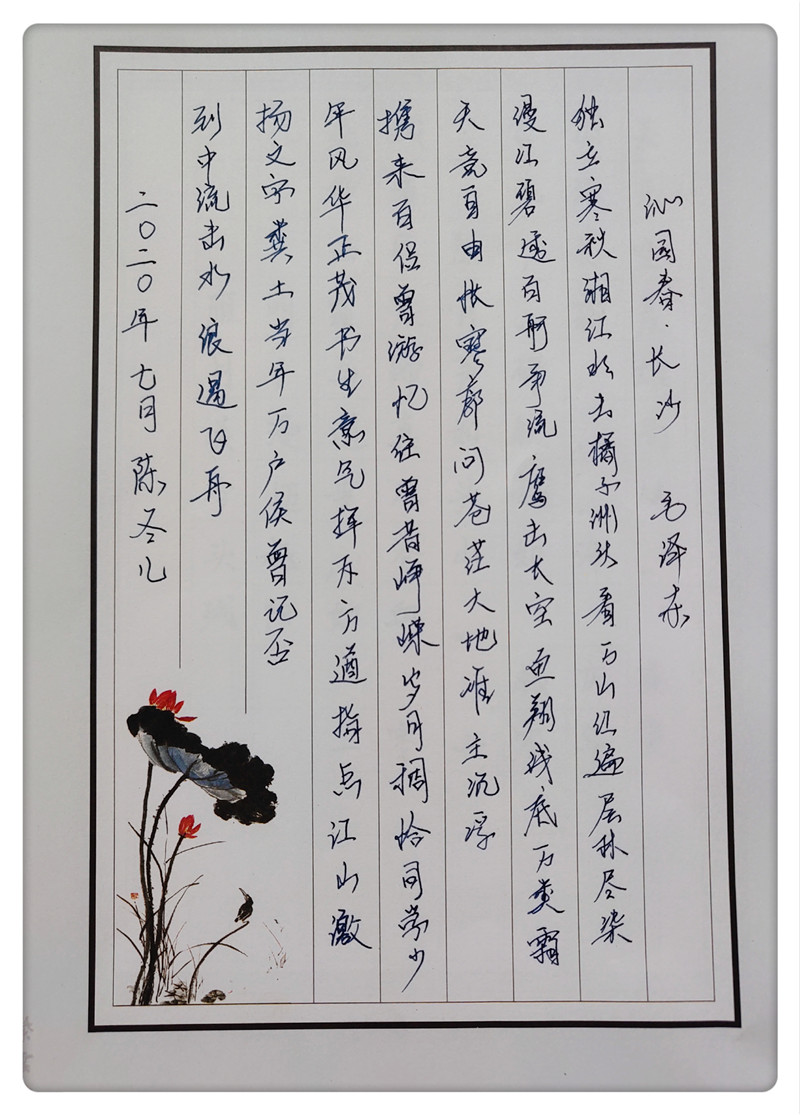 沁园春·长沙 毛泽东
独立寒秋湘江北去橘子洲头看万山红遍层林尽染
漫江碧透百舸争流鹰击长空鱼翔浅底万类霜
天竞自由怅寥廓问苍茫大地谁主沉浮
携来百侣曾游忆往曾昔峥嵘岁月稠恰同学少
年风华正茂书生意气挥斥方遒指点江山激
扬文字粪土当年万户侯曾记否
到中流击水浪遏飞舟
二〇二〇年七月陈儿